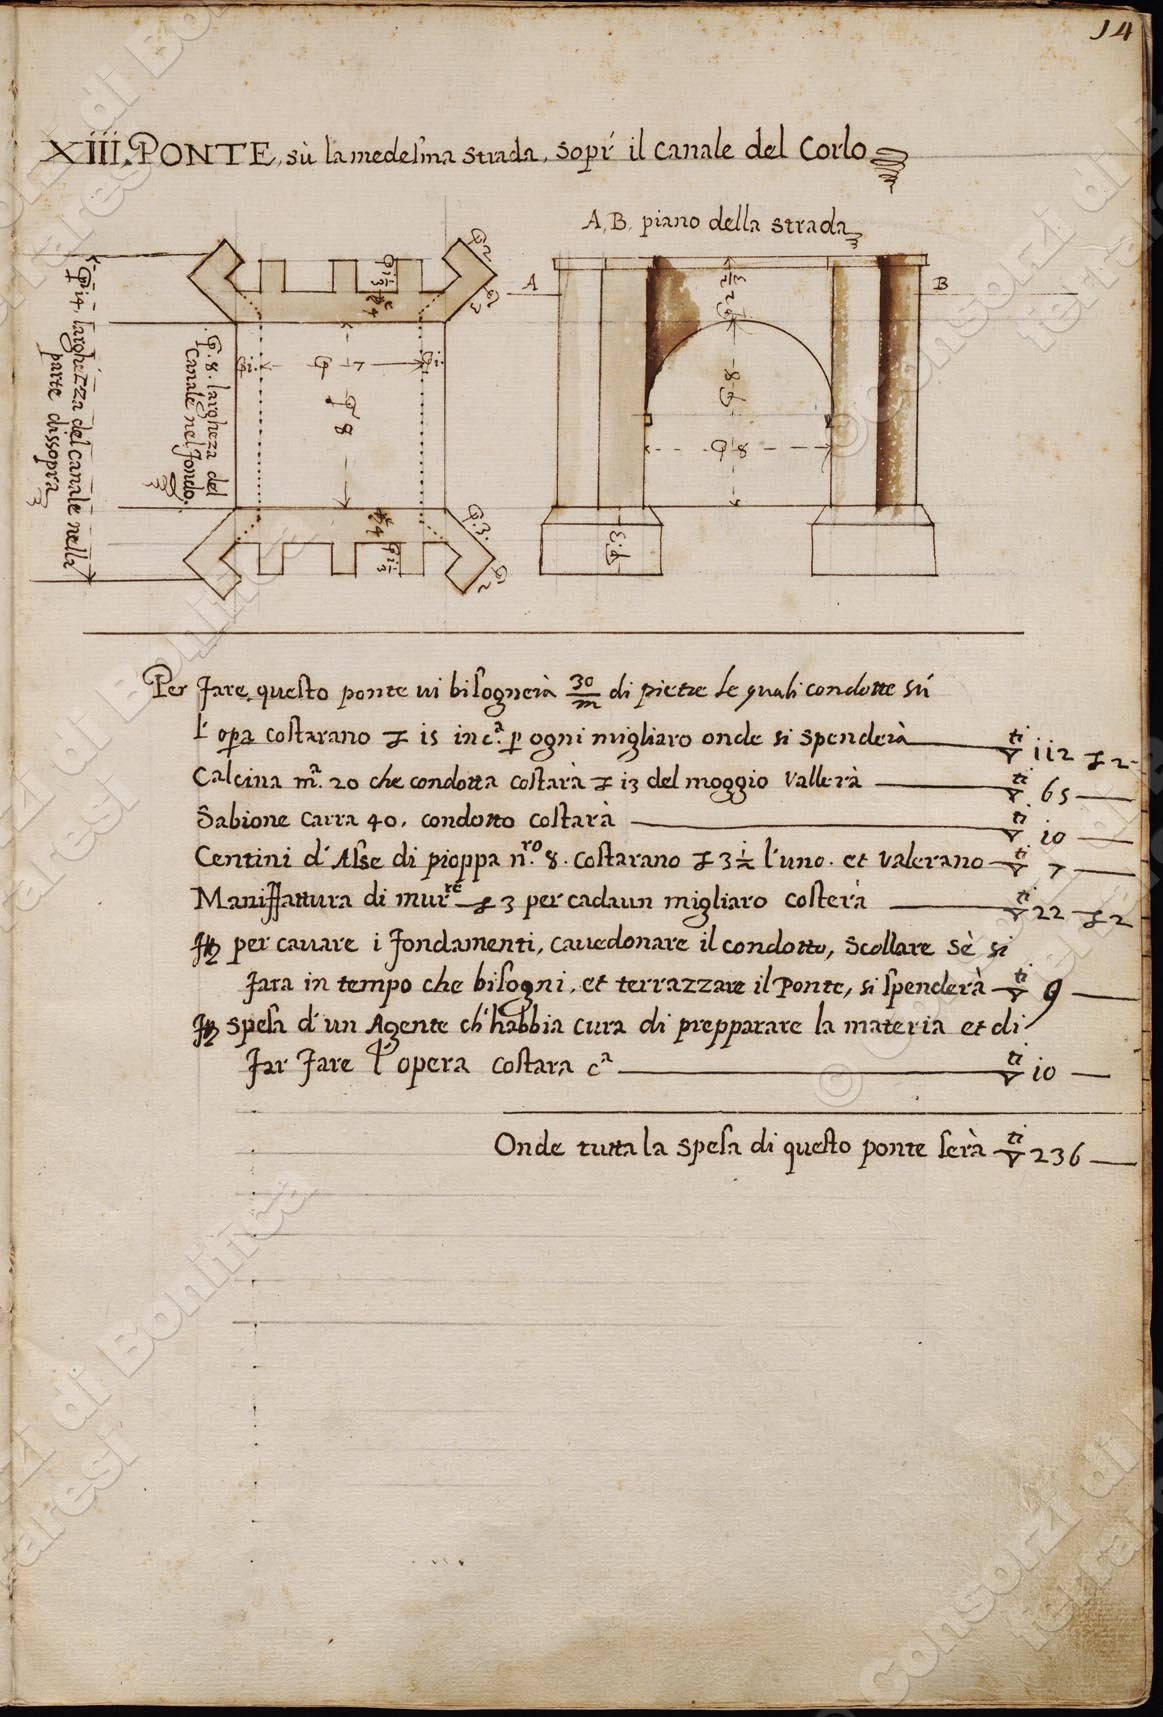 14
XIII. PONTE, sù la medesma strada, sopr' il canale del Corlo
A, B, piano della strada
A
B
P 14. larghezza del canale nella
parte dissopra
P. 8. largheza del
Canale nel fondo.
P 2
P 3
P 1/3
4
P 1.
P 7
P 1.
P 8
4
P 1/3
P. 3.
P 2
P 8
P 8
P. 3
Per fare questo ponte vi bisognerà 30/m di pietre le quali condotte sú
l'opa costarano 15 in c.ª p ogni migliaro onde si spenderà 112 2
Calcina m.ª 20 che condotta costarà 13 del moggio vallerà 65
Sabione carra 40, condotto costarà 10
Centini d'Asse di pioppa n.ro 8. costarano 3 1/2 l'uno. et valerano 7
Maniffattura di mur.re 3 per cadaun migliaro costerà 22 2
per cavare i fondamenti, cavedonare il condotto, scollare sè si
fara in tempo che bisogni, et terrazzare il Ponte, si spenderà 9
spesa d'un Agente ch'habbia cura di prepparare la materia et di
far fare l'opera costara c.ª 10
Onde tutta la spesa di questo ponte serà 236
© Consorzi di Bonifica
ferraresi